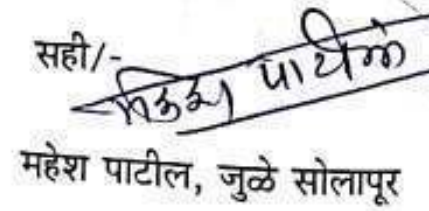 सही/-
महेश पाटील
महेश पाटील, जुळे सोलापूर